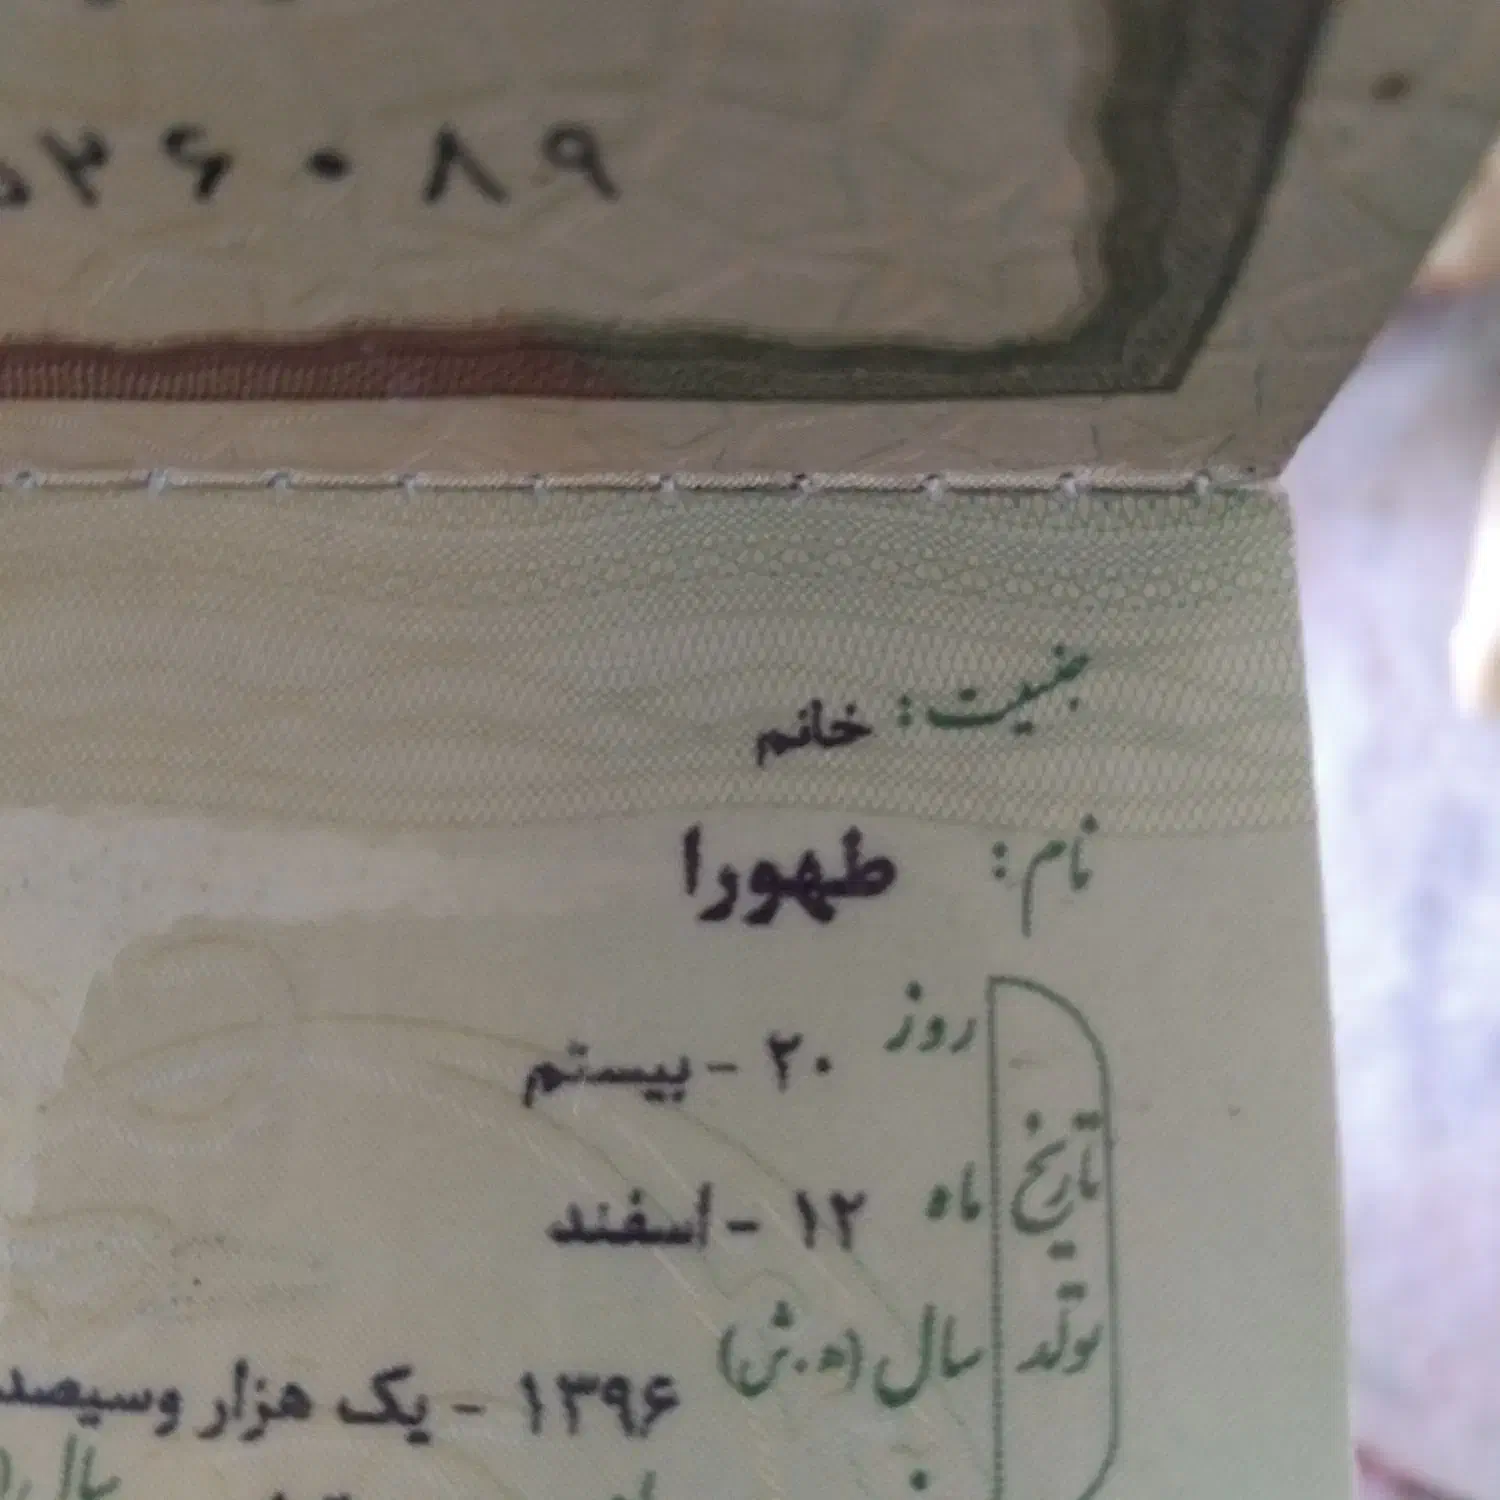 ۲۶۰۸۹
جنسیت: خانم
نام: طهورا
تاریخ تولد
روز ۲۰ - بیستم
ماه ۱۲ - اسفند
سال (ه.ش) ۱۳۹۶ - یک هزار وسیصد
سال